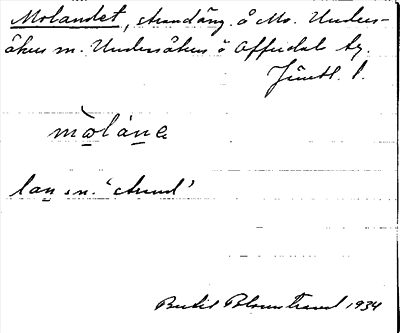 Molandet, strandäng å Mo. Unders-
åkers sn. Undersåkers o Offerdals tg.
Jämtl. l.
mo̱lán̲e̲
lan̲ sn. 'strand'
Bertil Blomstrand 1934